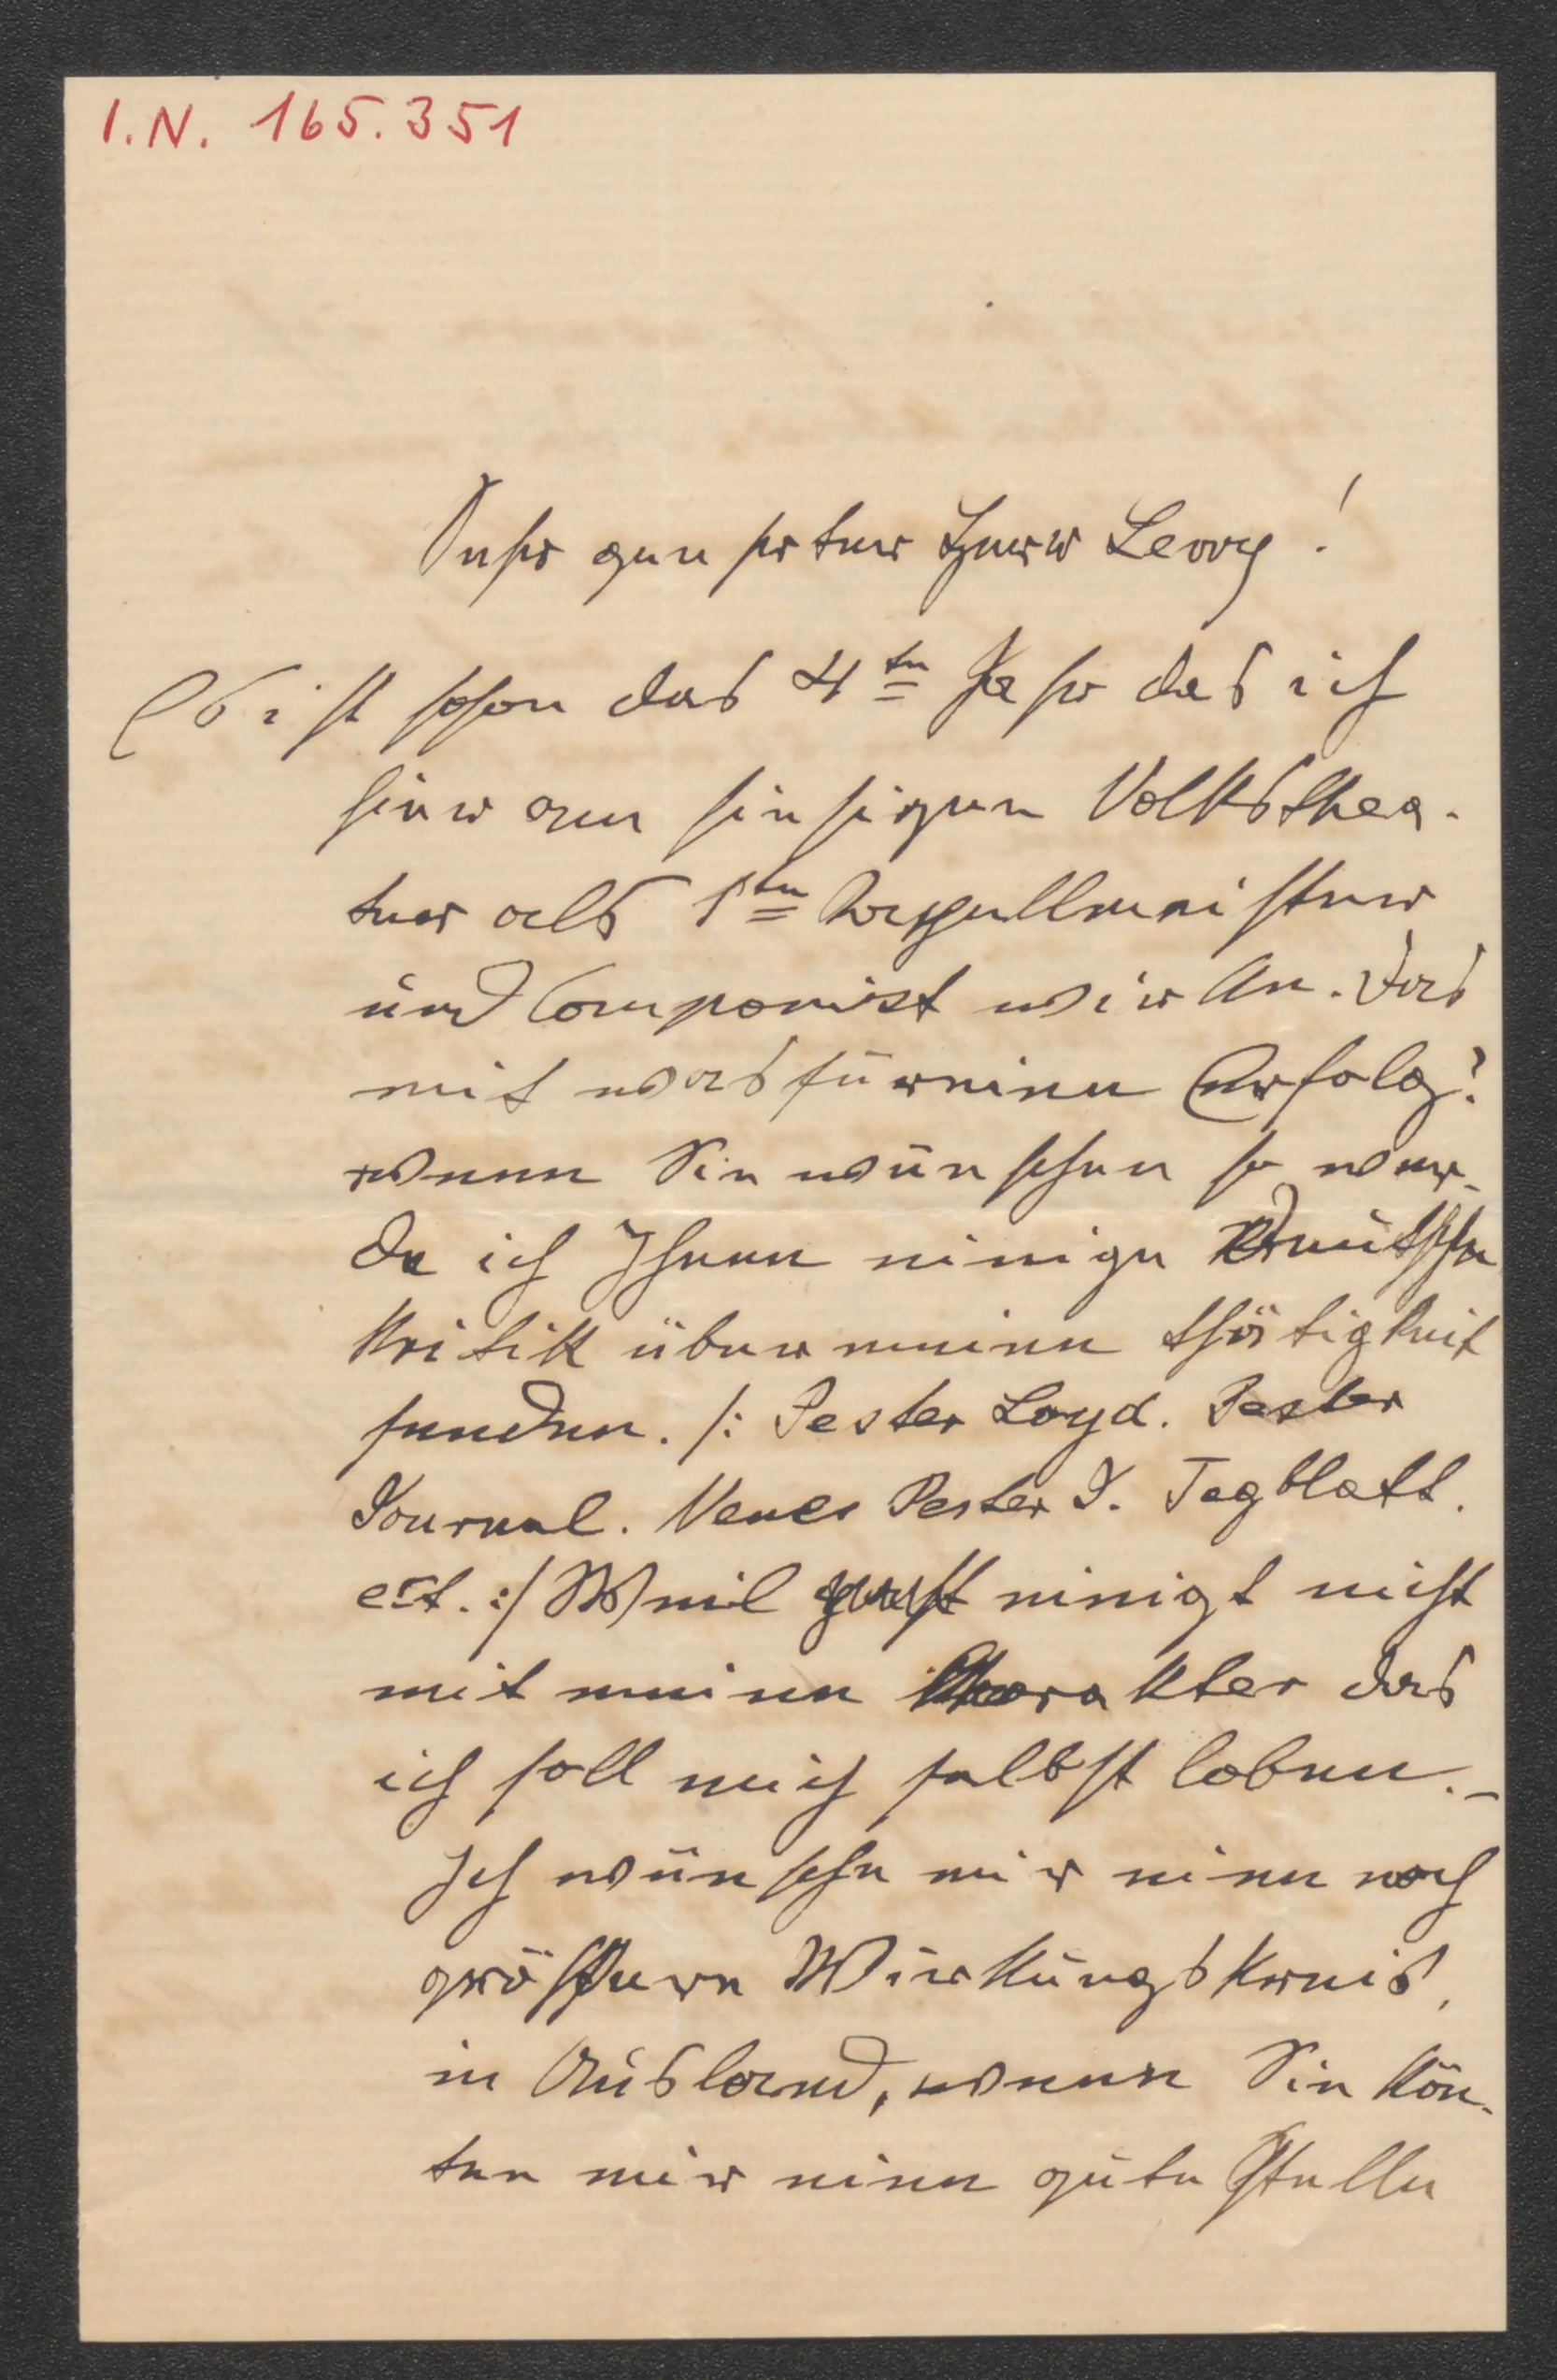 I.N. 165.351
Sehr geehrter Herr Levvy!
Es ist schon das 4te Jahr das ich
hier am hiesigen Volksthea-
ter als 1te Kapellmeister
und Componist wirke. Das
mit was für einen Erfolg?
wenn Sie wünschen so wer-
de ich Ihnen einige Deutsche
Kritik über meine thätigkeit
senden. /: Pester Loyd. Pester
Journal. Neues Pester J. Tagblatt.
ect. :/ Weil einigt nicht
mit meinen Charakter das
ich soll mich selbst loben.-
Ich wünsche mir eine noch
grössere Wirkungskreis,
in Ausland, wenn Sie kön-
ten mir eine gute Stelle